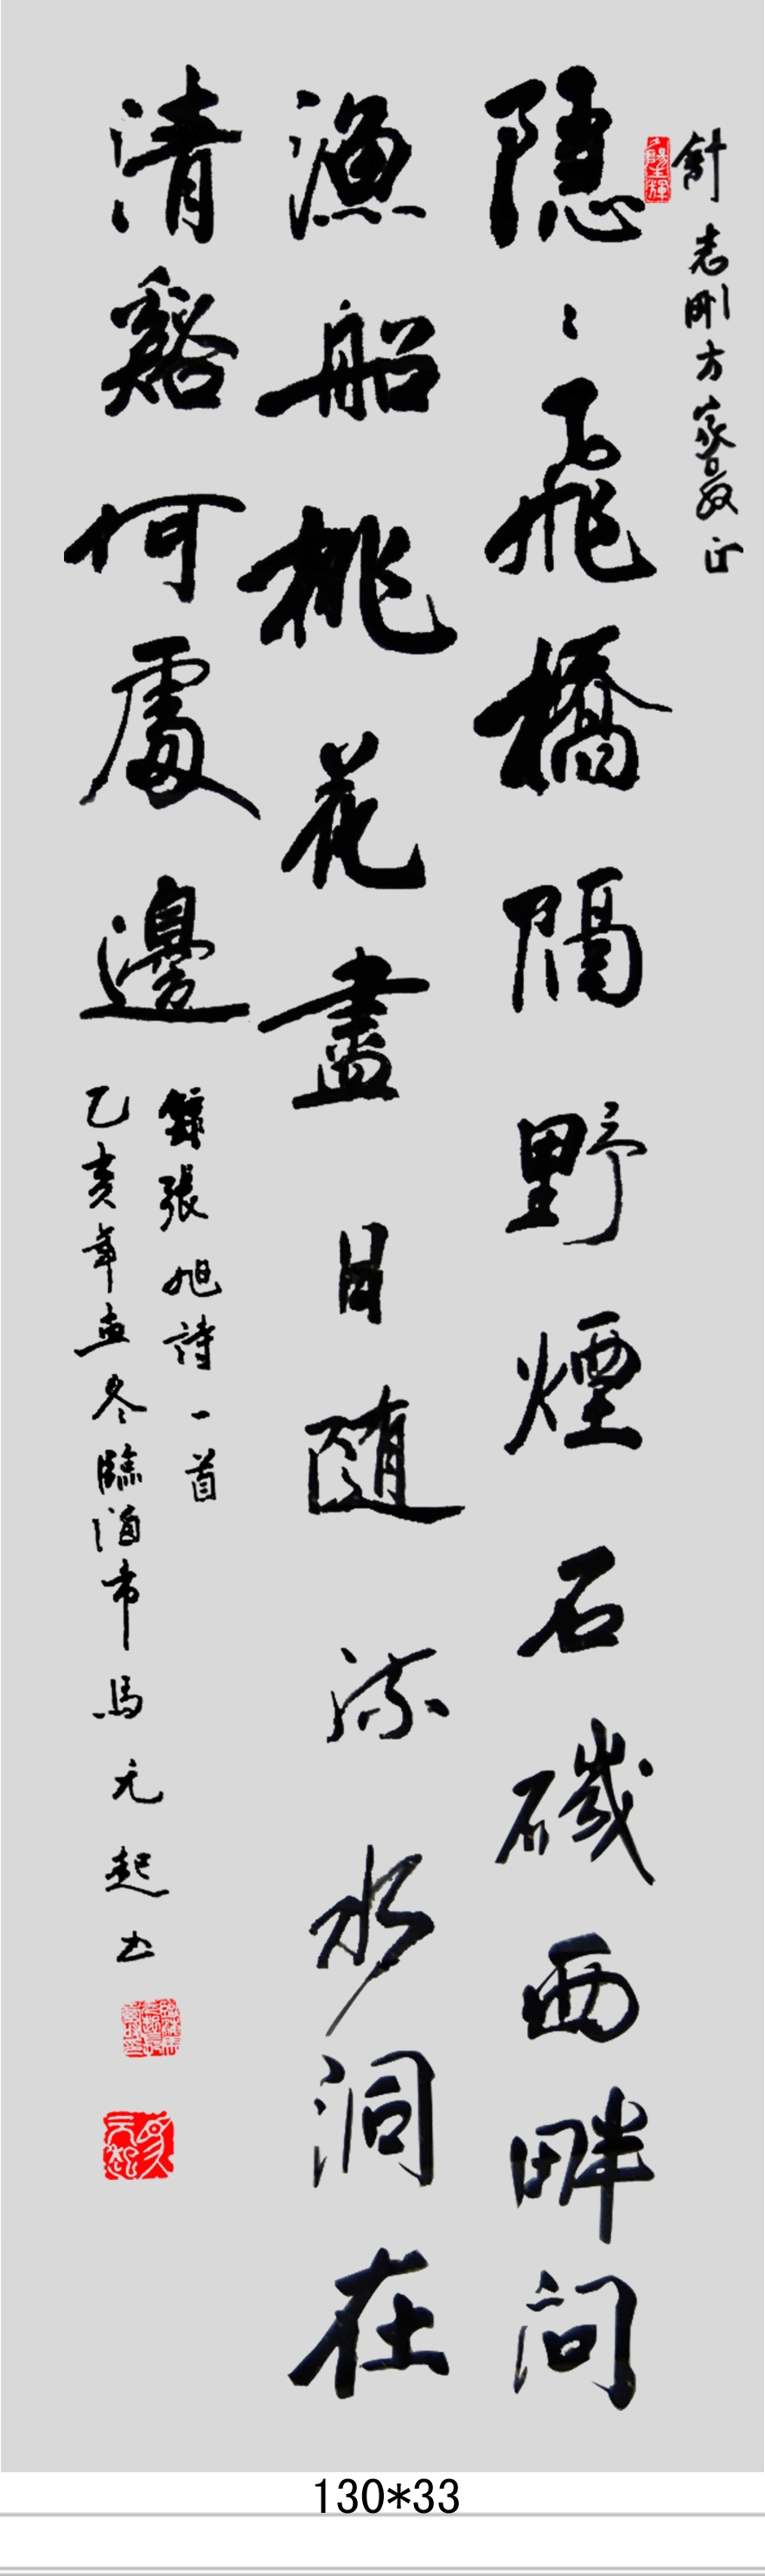 舒志剛方家教正
隱〻飛橋隔野煙石磯西畔問
漁船桃花盡日随流水洞在
清谿何處邊
錄張旭詩一首
乙亥年孟冬臨洮市馬元起书
130*33